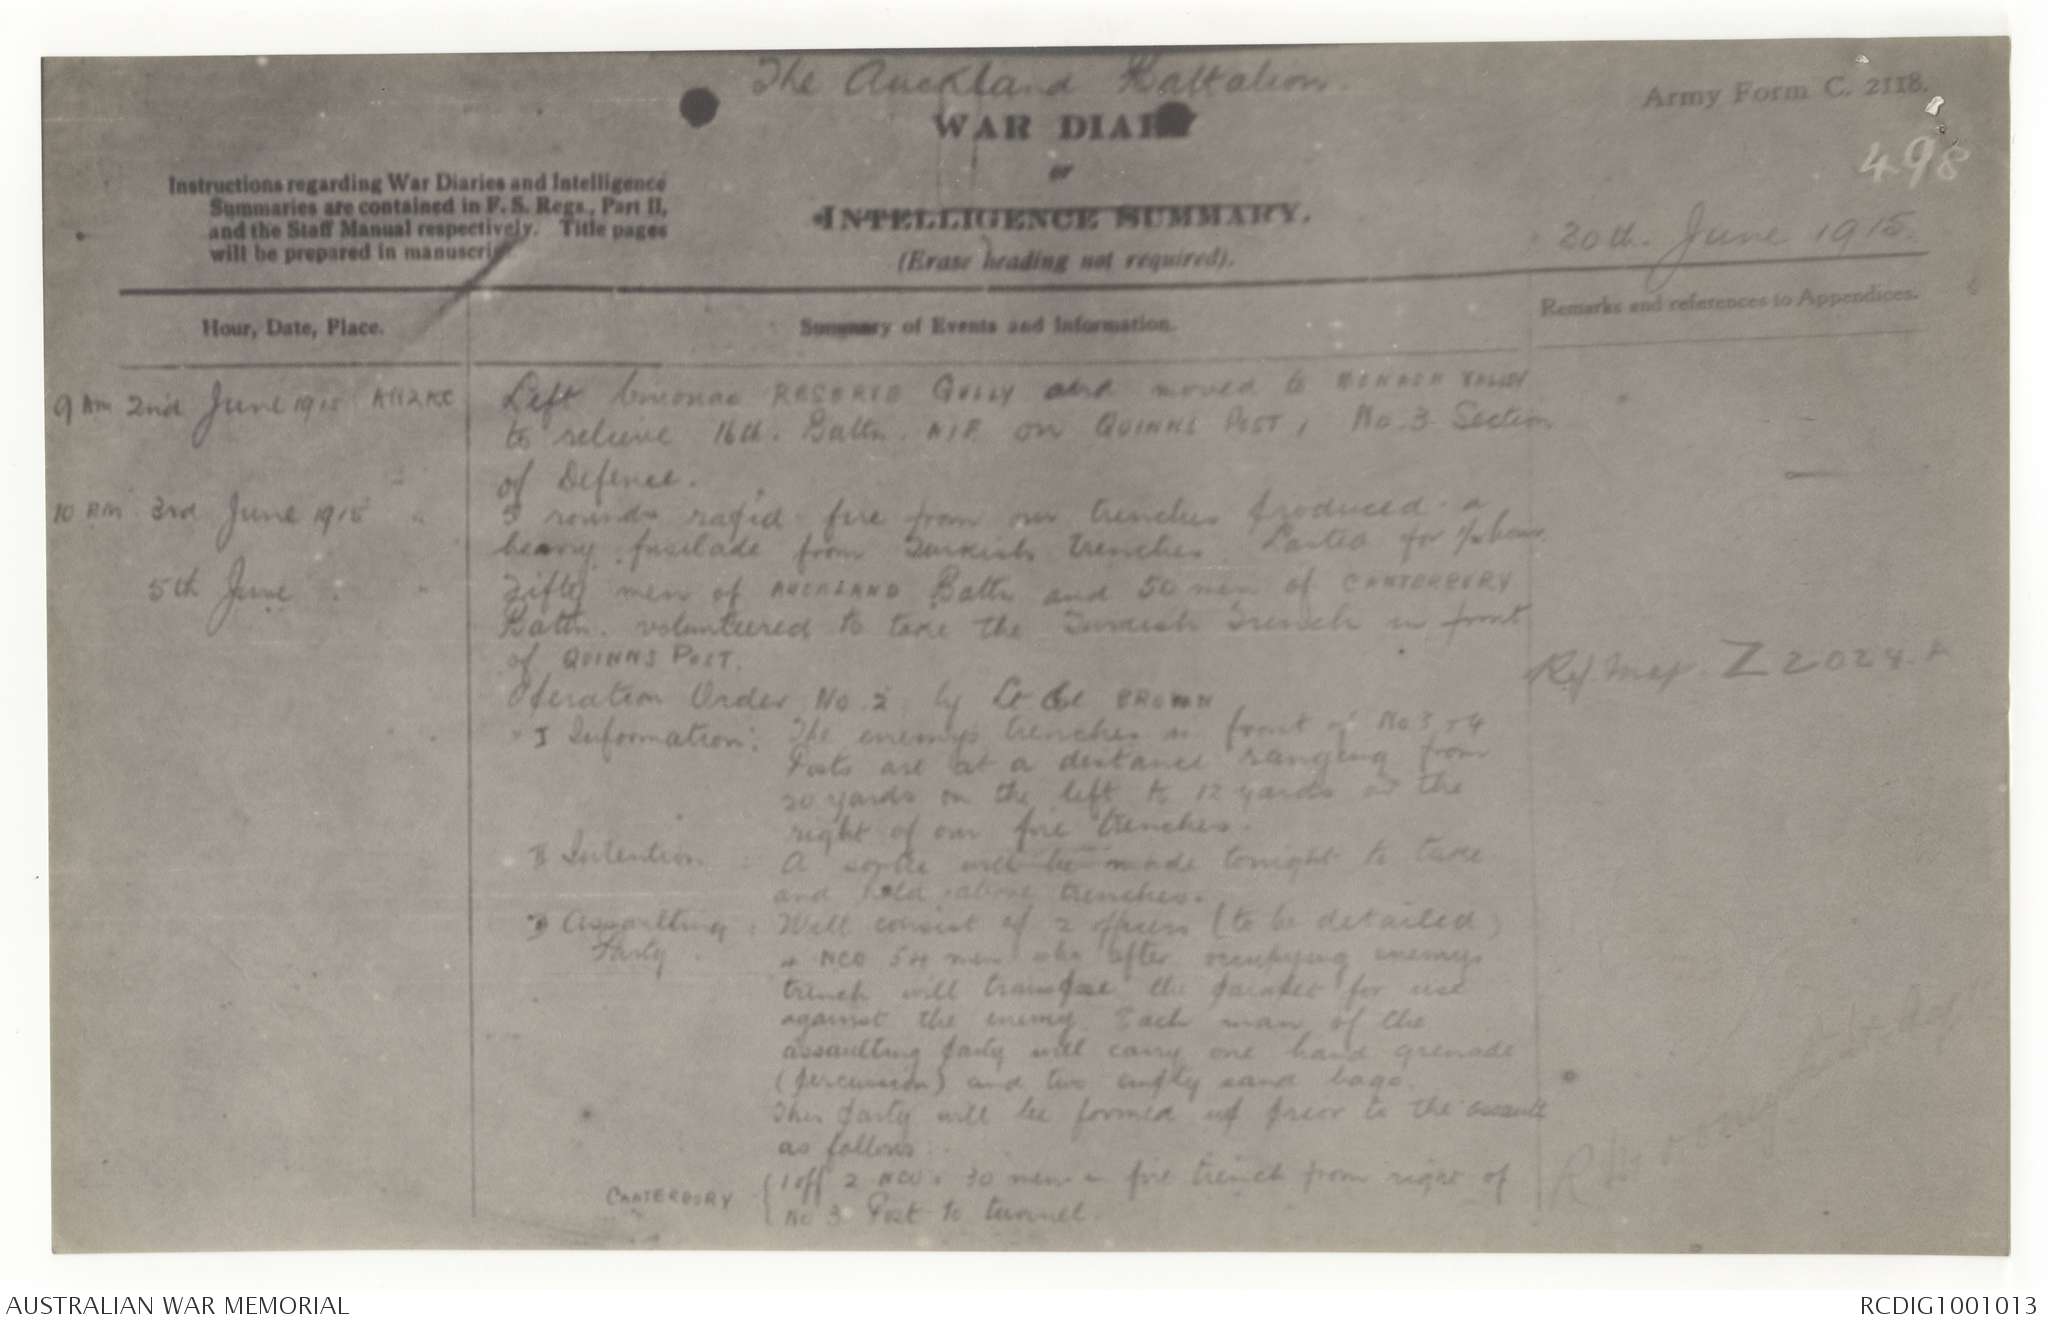 The Auckland Battalion.
Army Form C. 2118.
WAR DIARY
498
or
INTELLIGENCE SUMMARY.
(Erase heading not required).
Instructions regarding War Diaries and Intelligence
Summaries are contained in F. S. Regs., Part II,
and the Staff Manual respectively. Title pages
will be prepared in manuscript.
30th June 1915.
Hour, Date, Place.
Summary of Events and Information.
Remarks and references to Appendices.
9 AM 2nd June 1915
Left RESERVE GULLY and moved to MONASH VALLEY
to relieve 16th. Battn. AIF on QUINNS POST, No. 3 Section
of Defence.
10 PM 3rd June 1915 "
5 rounds rapid fire from our trenches produced a
heavy fusilade from Turkish trenches Lasted for hour.
5th June "
Fifty men of AUCKLAND Battn and 50 men of CANTERBURY
Battn. volunteered to take the Turkish Trench in front
of QUINNS POST.
Ref. Map. Z 2024.
Operation Order No. 2 by Lt Col BROWN
I Information: The enemy's trenches in front of No 3 + 4
Posts are at a distance ranging from
20 yards on the left to 12 yards on the
right of our fire trenches.
II Intention: A sortie will be made tonight to take
and hold above trenches.
3 Assaulting Party: Will consist of 2 officers (to be detailed)
4 NCO 54 men who after occupying enemys
trench will transpose the parapet for use
against the enemy. Each man of the
assaulting party will carry one hand grenade
(percussion) and two empty sand bags.
This party will be formed up prior to the assault
as follows:
CANTERBURY { 1 off 2 NCO. 30 men in fire trench from right of
No 3 Post to tunnel.
AUSTRALIAN WAR MEMORIAL
RCDIG1001013